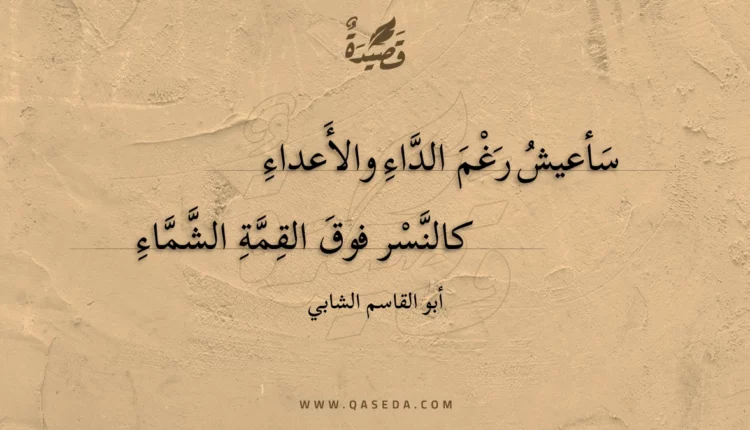 قَصِيدَةٌ
سَأعيشُ رَغْمَ الدَّاءِ والأَعداءِ
كالنَّسْر فوقَ القِمَّةِ الشَّمَّاءِ
أبو القاسم الشابي
WWW.QASEDA.COM